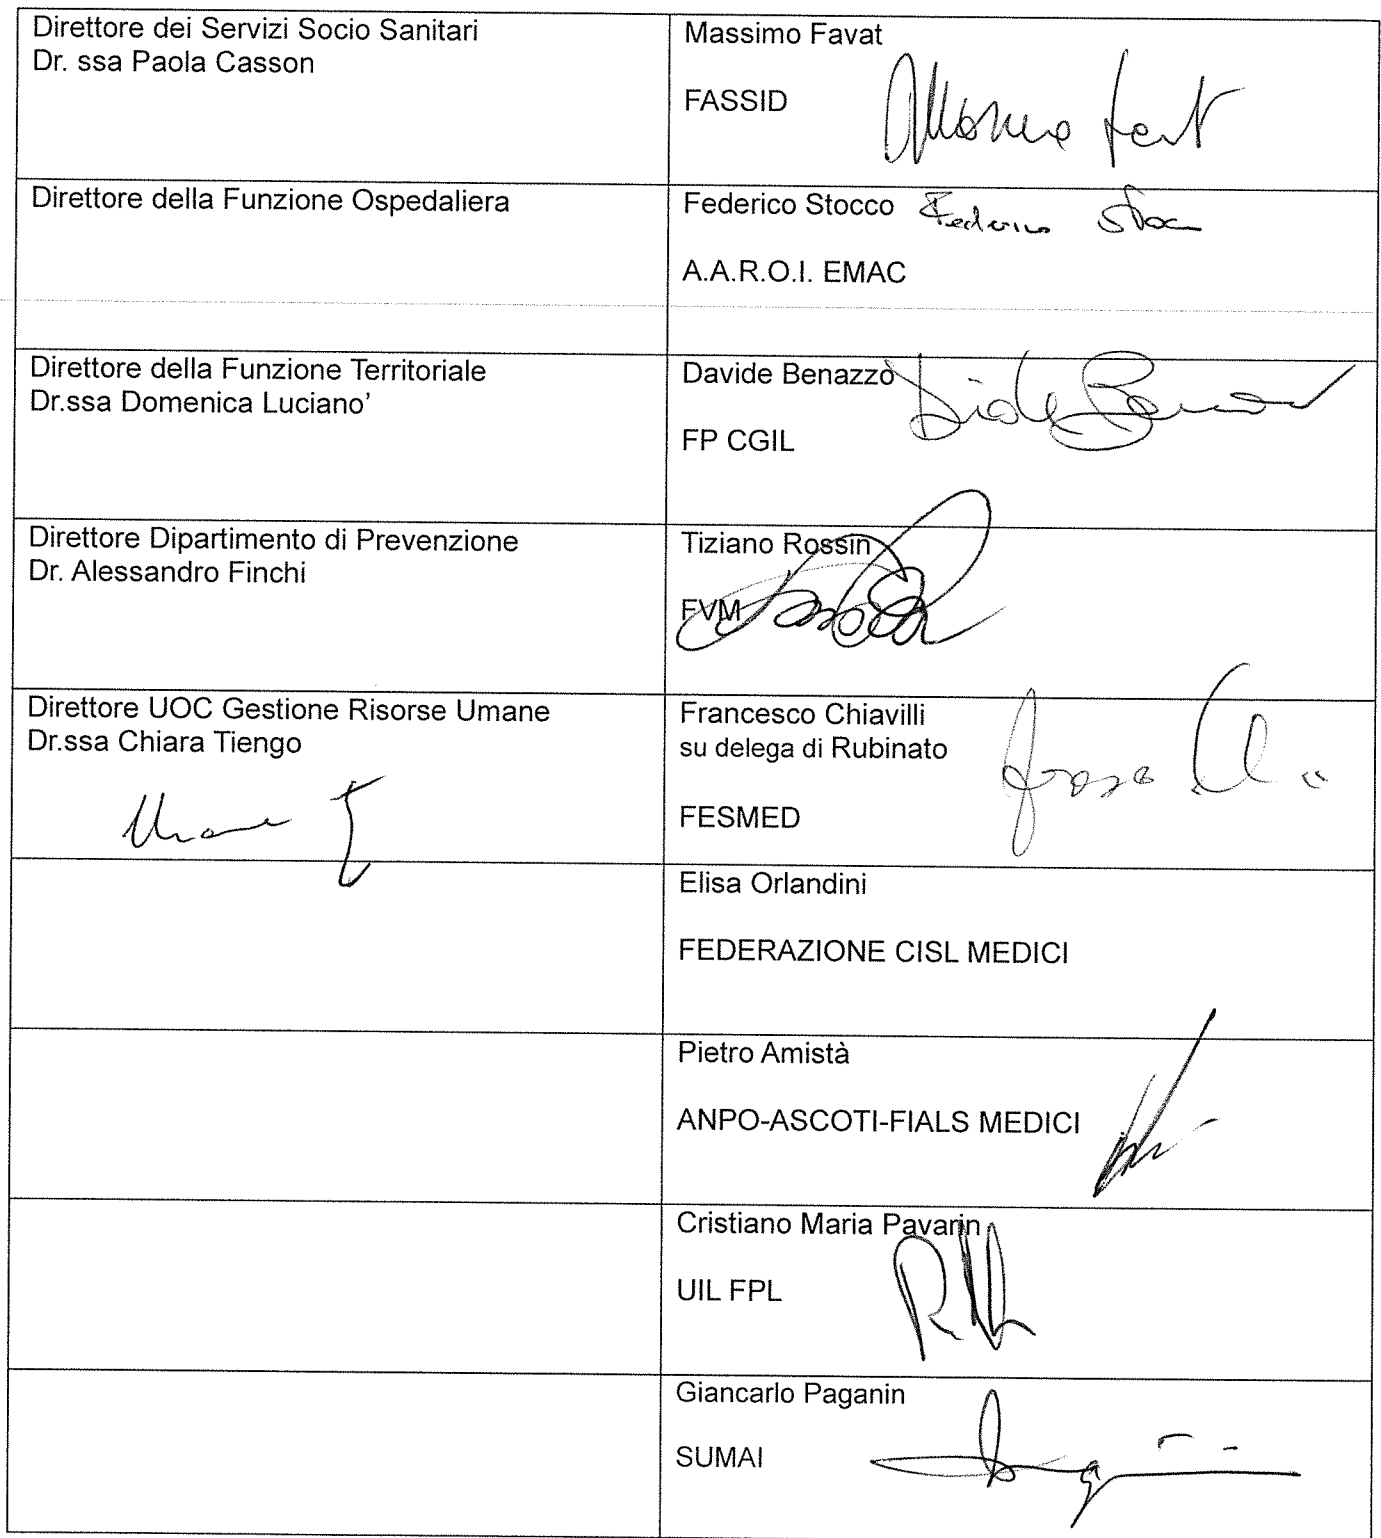 Direttore dei Servizi Socio Sanitari
Dr. ssa Paola Casson
Massimo Favat
FASSID
Direttore della Funzione Ospedaliera
Federico Stocco
A.A.R.O.I. EMAC
Direttore della Funzione Territoriale
Dr.ssa Domenica Luciano'
Davide Benazzo
FP CGIL
Direttore Dipartimento di Prevenzione
Dr. Alessandro Finchi
Tiziano Rossin
FVM
Direttore UOC Gestione Risorse Umane
Dr.ssa Chiara Tiengo
Francesco Chiavilli
su delega di Rubinato
FESMED
Elisa Orlandini
FEDERAZIONE CISL MEDICI
Pietro Amistà
ANPO-ASCOTI-FIALS MEDICI
Cristiano Maria Pavarin
UIL FPL
Giancarlo Paganin
SUMAI